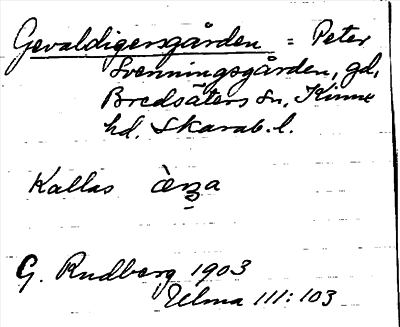 Gevaldigersgården = Peter
Svenningsgården, gd,
Bredsäters sn, Kinne
hd. Skarab. l.
Kallas
G. Rudberg 1903
Uelma III: 103